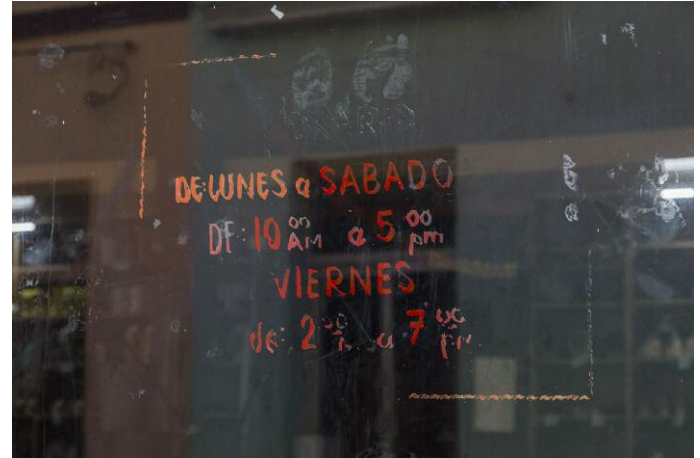 DE: LUNES a SABADO
DE: 10 00 AM a 5 00 pm
VIERNES
de: 2 00 a 7 00 pm